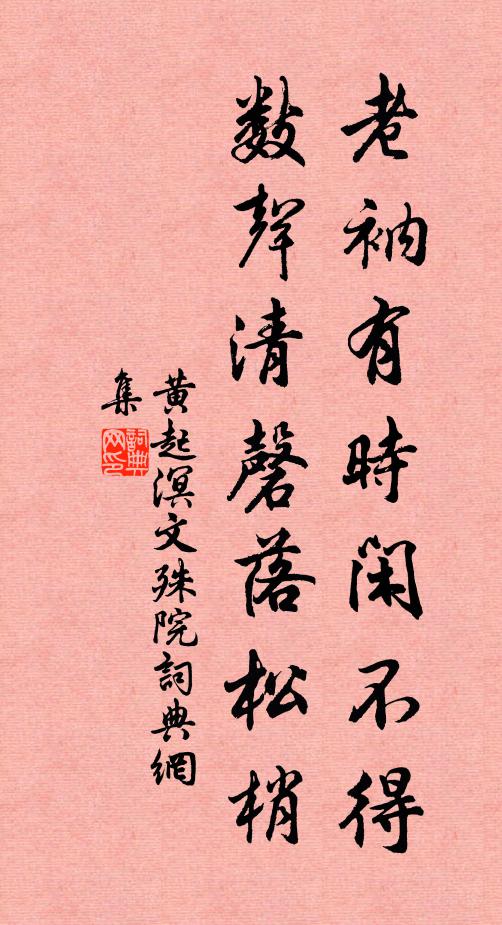 老衲有時閑不得
數聲清磬落松梢
黄起溟文殊院詞典網
集
詞典網印